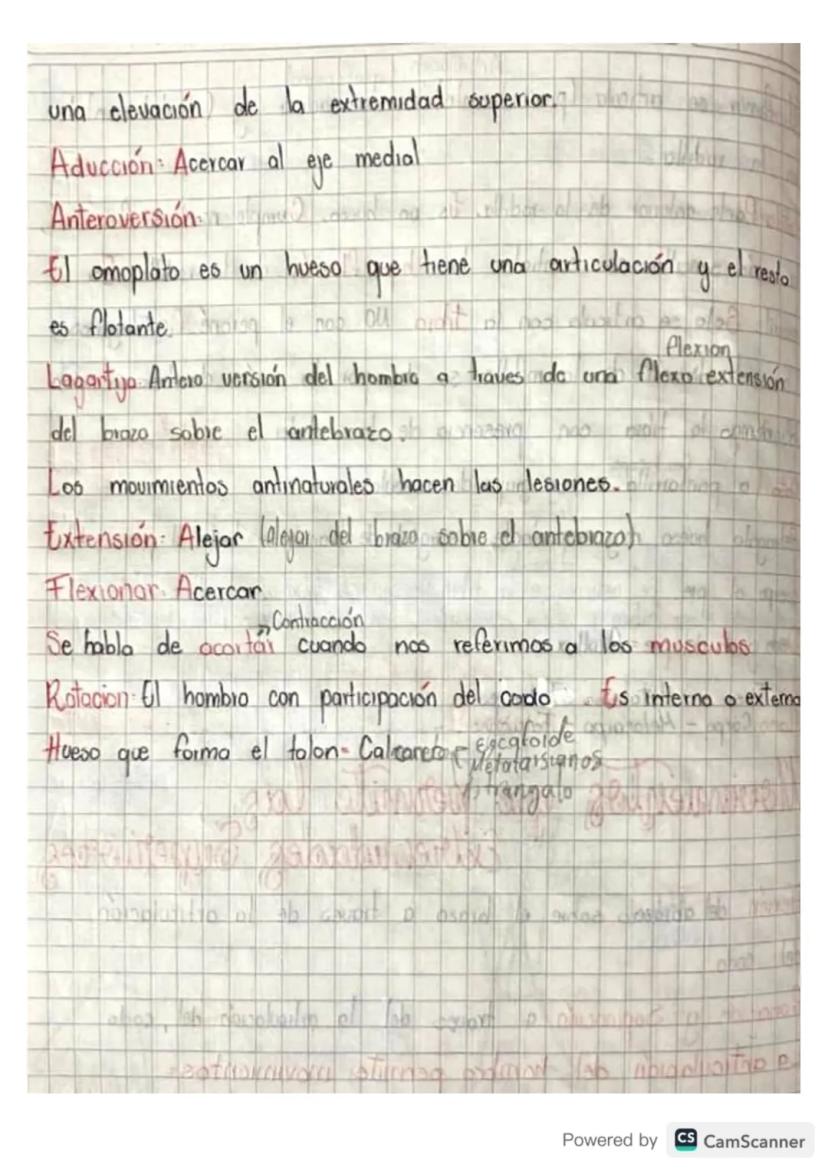 una elevación de la extremidad superior.
Aducción: Acercar al eje medial
Anteroversión:
El omoplato es un hueso que tiene una articulación y el resto
es flotante.
Flexion
Lagartija: Antero versión del hombro a traves de una flexo extensión
del brazo sobre el antebrazo.
Los movimientos antinaturales hacen las lesiones.
Extensión: Alejar (alejar del brazo sobre el antebrazo)
Flexionar: Acercar
Contracción
Se habla de acortar cuando nos referimos a los musculos
Rotacion: El hombro con participación del codo Es interno o externo
Hueso que forma el talon- Calcaneo Escafoide
Metatarsianos
Powered by CS CamScanner